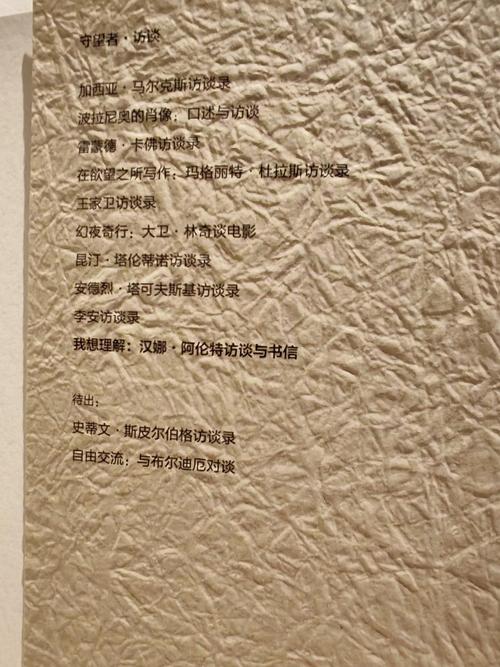 守望者·访谈
加西亚·马尔克斯访谈录
波拉尼奥的肖像：口述与访谈
雷蒙德·卡佛访谈录
在欲望之所写作：玛格丽特·杜拉斯访谈录
王家卫访谈录
幻夜奇行：大卫·林奇谈电影
昆汀·塔伦蒂诺访谈录
安德烈·塔可夫斯基访谈录
李安访谈录
我想理解：汉娜·阿伦特访谈与书信
待出：
史蒂文·斯皮尔伯格访谈录
自由交流：与布尔迪厄对谈